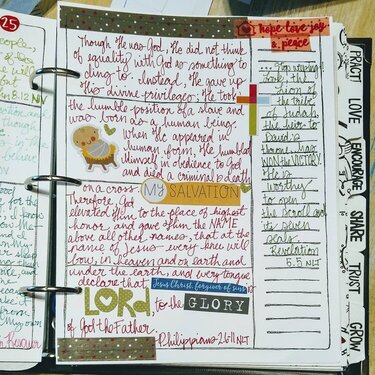 25
8:12 NLT
Though He was God, He did not think
of equality with God as something to
cling to. Instead, He gave up
His divine privileges; He took
the humble position of a slave and
was born as a human being.
When He appeared in
human form, He humbled
Himself in obedience to God
and died a criminal's death
on a cross.
MY SALVATION
Therefore, God
elevated Him to the place of highest
honor and gave Him the NAME
above all other names, that at the
name of Jesus every knee will
bow, in heaven and on earth and
under the earth, and every tongue
declare that Jesus Christ, forgiver of sins
LORD, to the GLORY
of God the Father.
Philippians 2:6-11 NLT
hope · love · joy
& peace
the
Lion of
the tribe
of Judah,
the heir to
David's
throne, has
WON the VICTORY
He is
worthy
to open
the scroll and
its seven
seals.
Revelation
5:5 NLT
PRACT
LOVE
ENCOURAGE
SHARE
TRUST
GROW